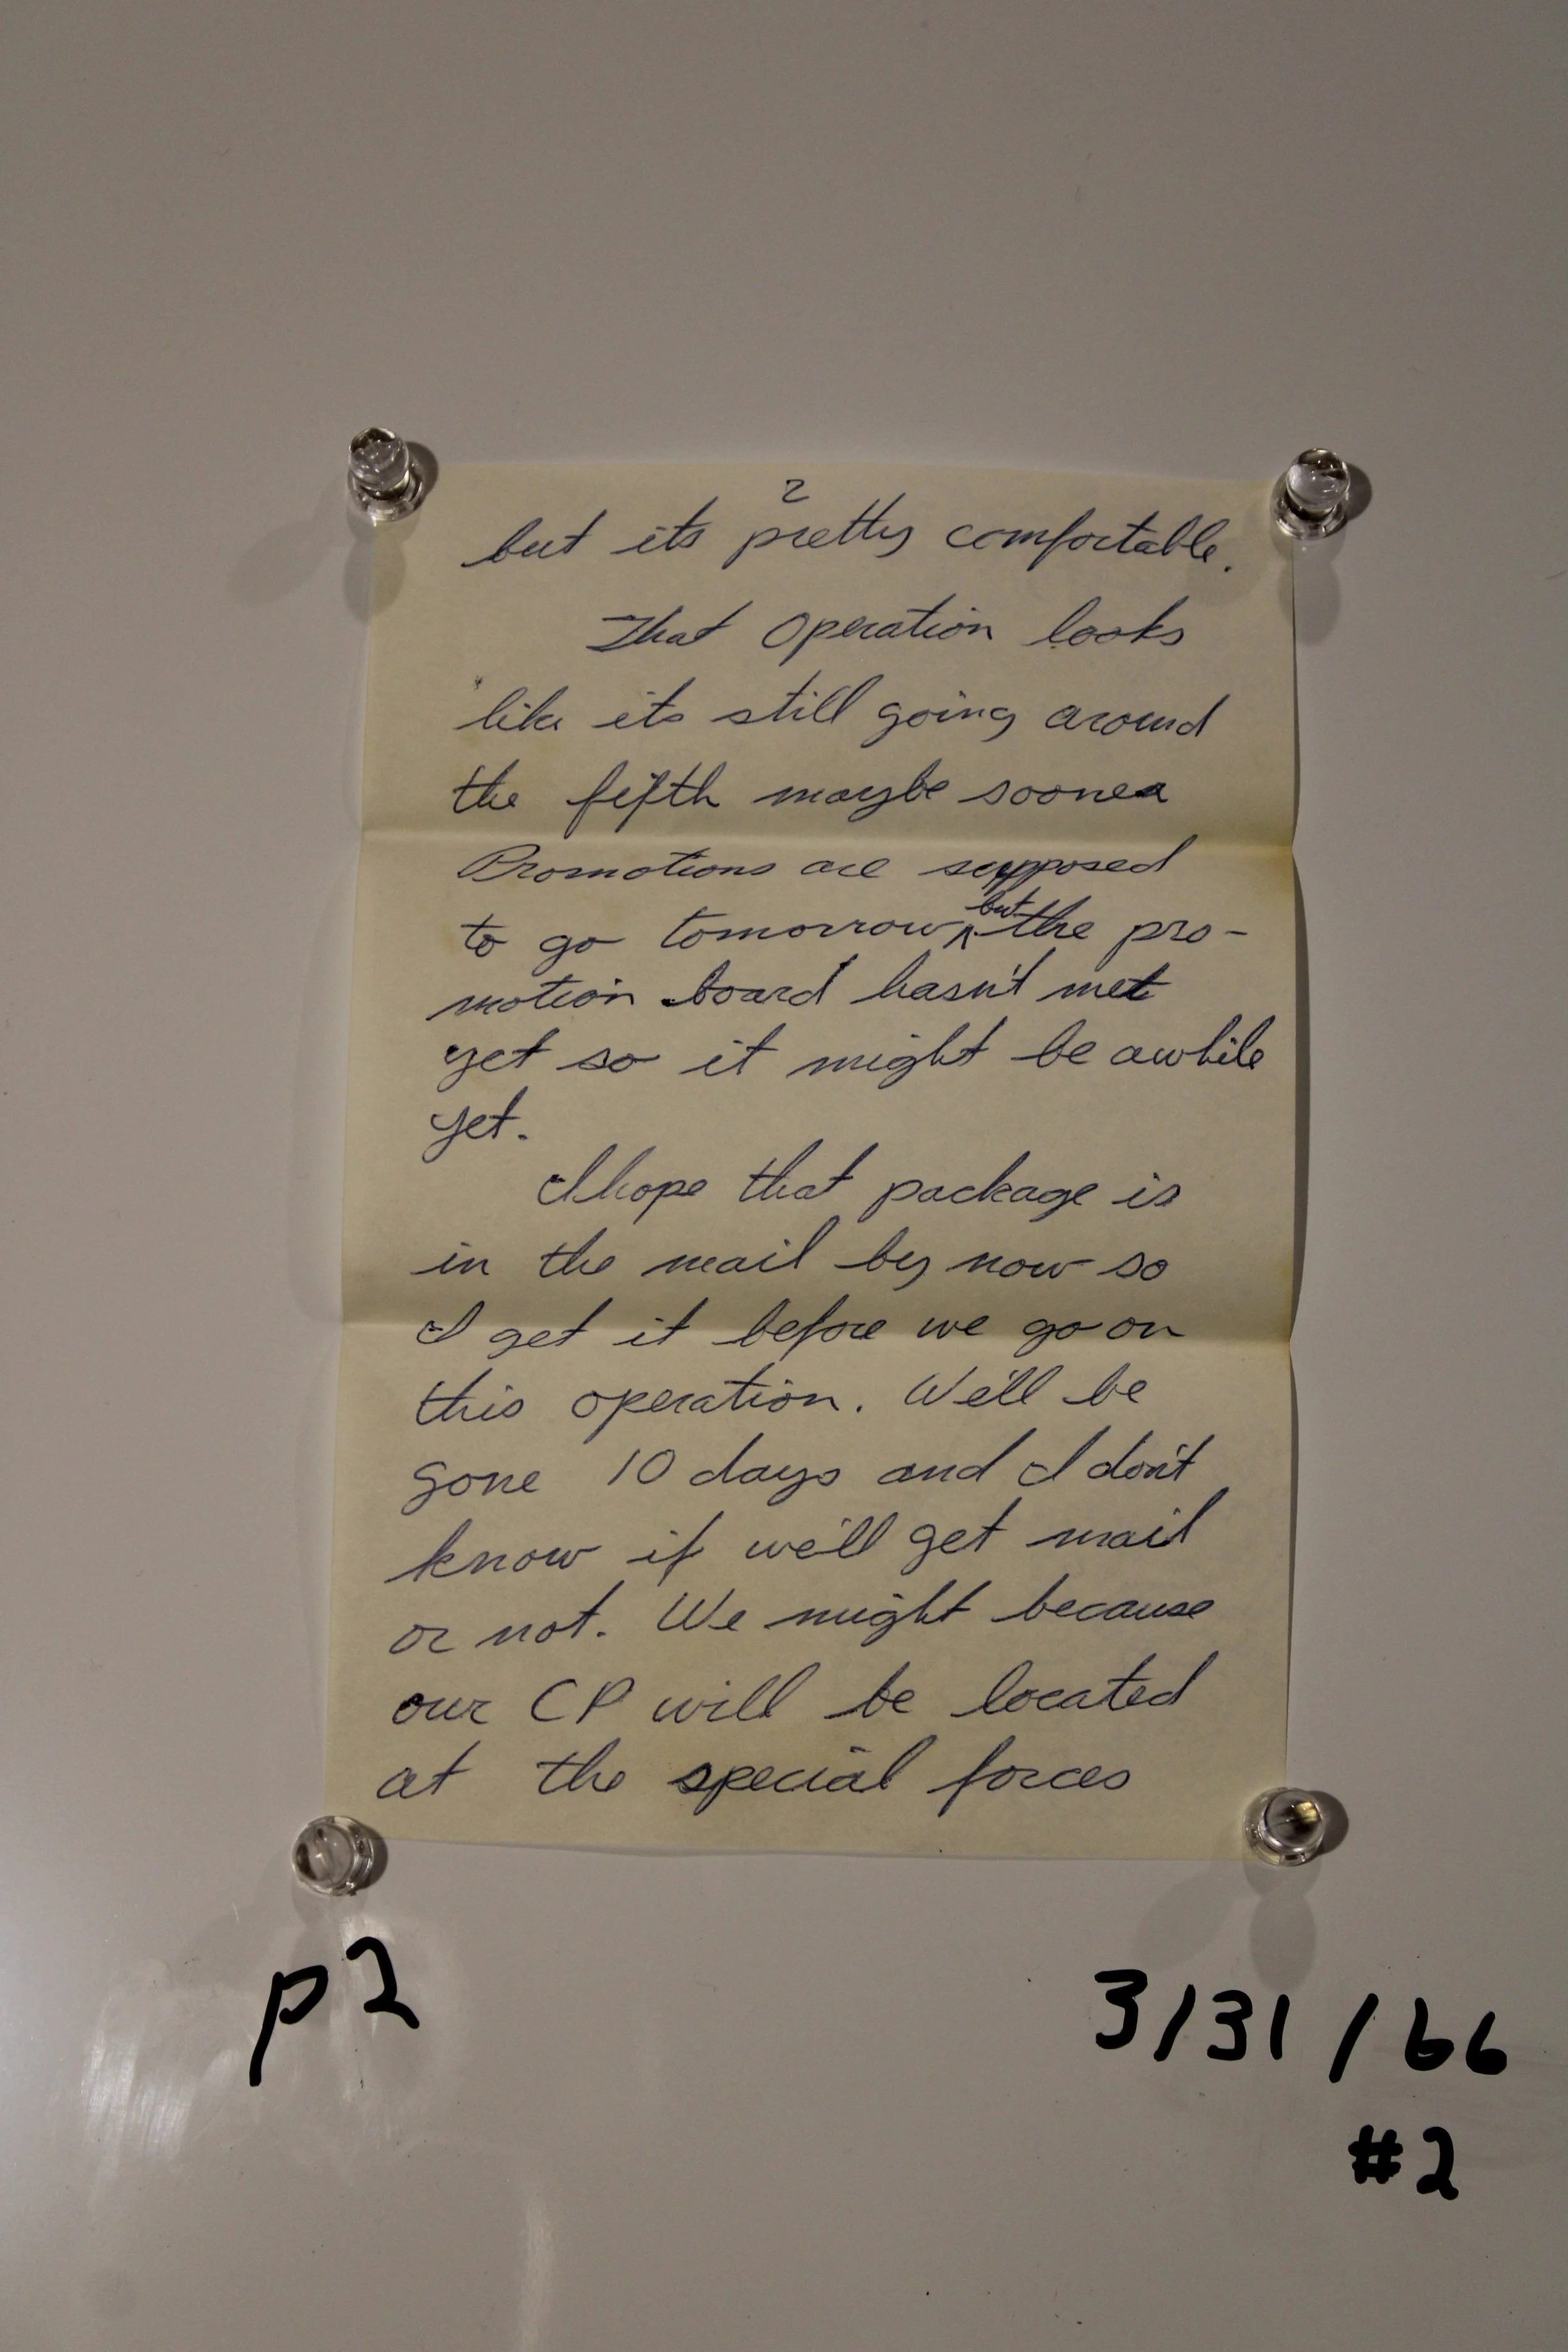 2
but its pretty comfortable.
That Operation looks
like its still going around
the fifth maybe sooner
Promotions are supposed
to go tomorrow ^but the pro-
motion board hasn't met
yet so it might be awhile
yet.
I hope that package is
in the mail by now so
I get it before we go on
this operation. We'll be
gone 10 days and I don't
know if we'll get mail
or not. We might because
our CP will be located
at the special forces
p2
3/31/66
#2